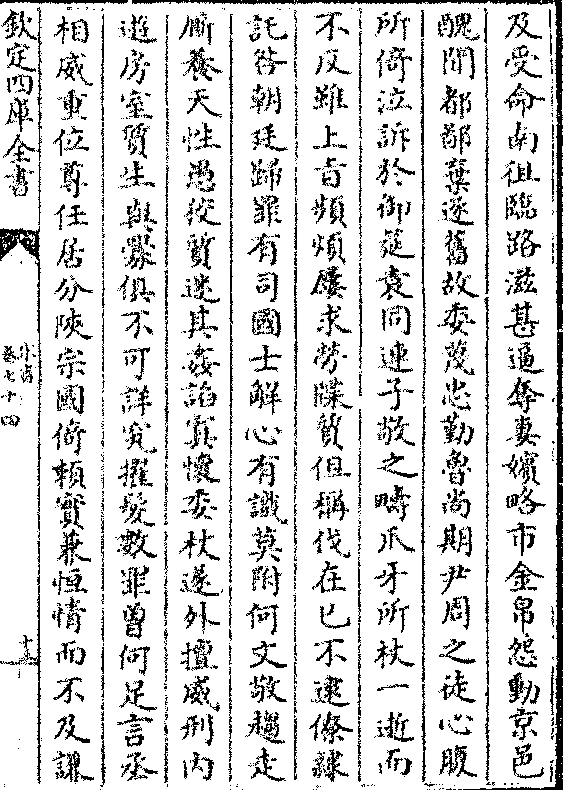 及受命南徂臨路滋甚逼奪妻嬪略市金帛怨動京邑
醜聞都鄙棄逐舊故委蔑忠勤魯尚期尹周之徒心腹
所倚泣訴於御筵袁同連子敬之疇爪牙所杖一逝而
不反雖上旨頻煩屢求勞牒質但稱伐在已不逮僚隸
託咎朝廷歸罪有司國士解心有識莫附何文敬趨走
廝養天性愚狡質迷其姦諂寘懷委杖遂外擅威刑内
遊房室質生與釁俱不可詳究擢髮數罪曽何足言丞
相威重位尊任居分陜宗國倚頼實兼恒情而不及謀
欽定四庫全書
宋書
卷七十四